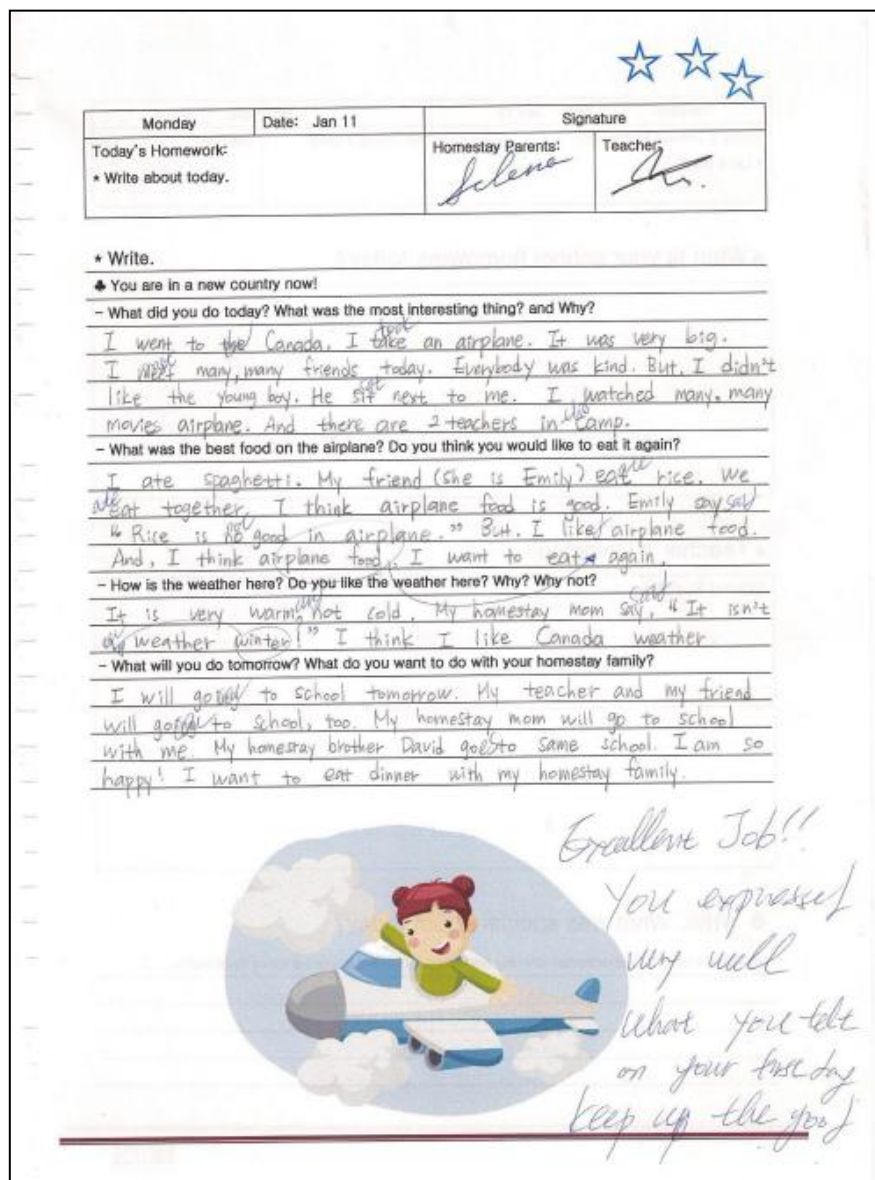 Monday Date: Jan 11 Signature
Today's Homework: Homestay Parents: Teacher:
* Write about today. Selena
* Write.
♣ You are in a new country now!
- What did you do today? What was the most interesting thing? and Why?
took
I went to the Canada. I take an airplane. It was very big.
met
I meet many, many friends today. Everybody was kind. But, I didn't
sat
like the young boy. He sit next to me. I watched many, many
the
movies airplane. And there are 2 teachers in camp.
- What was the best food on the airplane? Do you think you would like to eat it again?
ate
I ate spaghetti. My friend (she is Emily) eat rice. We
ate said
eat together. I think airplane food is good. Emily say
not
"Rice is no good in airplane." But. I like airplane food.
And, I think airplane food, I want to eat again.
- How is the weather here? Do you like the weather here? Why? Why not?
and said
It is very warm, not cold. My homestay mom say, "It isn't
weather winter!" I think I like Canada weather
- What will you do tomorrow? What do you want to do with your homestay family?
I will going to school tomorrow. My teacher and my friend
will going to school, too. My homestay mom will go to school
with me. My homestay brother David goes to same school. I am so
happy! I want to eat dinner with my homestay family.
Excellent Job!!
You expressed
very well
what you felt
on your first day
keep up the good